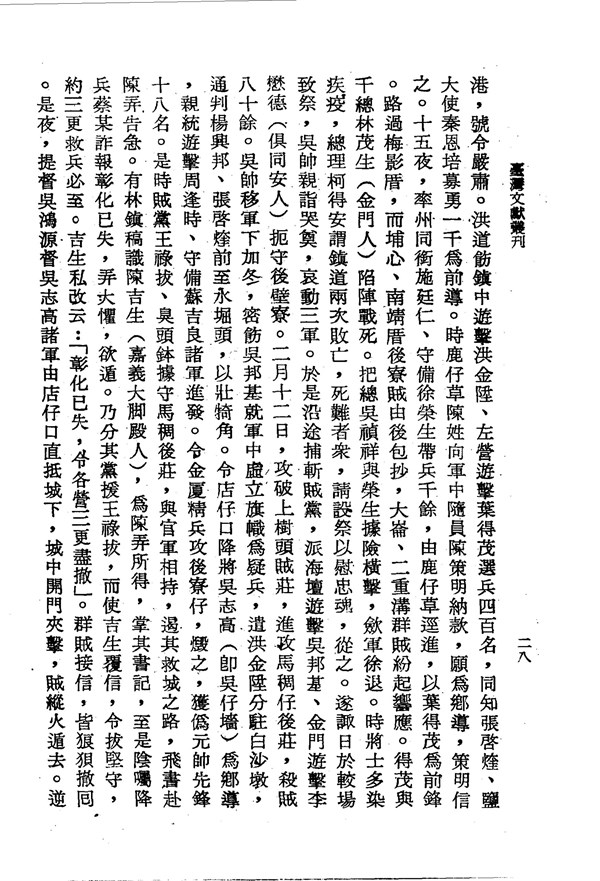 臺灣文獻叢刊
二八
港，號令嚴肅。洪道飭鎮中遊擊洪金陞、左營遊擊葉得茂選兵四百名，同知張啓煃、鹽
大使秦恩培募勇一千爲前導。時鹿仔草陳姓向軍中隨員陳策明納款，願爲鄉導，策明信
之。十五夜，率州同銜施廷仁、守備徐榮生帶兵千餘，由鹿仔草逕進，以葉得茂爲前鋒
。路過梅影厝，而埔心、南靖厝後寮賊由後包抄，大崙、二重溝群賊紛起響應。得茂與
千總林茂生（金門人）陷陣戰死。把總吳禎祥與榮生據險橫擊，歛軍徐退。時將士多染
疾疫，總理柯得安謂鎮道兩次敗亡，死難者衆，請設祭以慰忠魂，從之。遂諏日於較場
致祭，吳帥親詣哭奠，哀動三軍。於是沿途捕斬賊黨，派海壇遊擊吳邦基、金門遊擊李
懋德（俱同安人）扼守後壁寮。二月十二日，攻破上樹頭賊莊，進攻馬稠仔後莊，殺賊
八十餘。吳帥移軍下加冬，密飭吳邦基就軍中虛立旗幟爲疑兵，遣洪金陞分駐白沙墩，
通判楊興邦、張啓煃前至水堀頭，以壯犄角。令店仔口降將吳志高（卽吳仔墻）爲鄉導
，親統遊擊周逢時、守備蘇吉良諸軍進發。令金厦精兵攻後寮仔，燬之，獲僞元帥先鋒
十八名。是時賊黨王祿拔、臭頭鉢據守馬稠後莊，與官軍相持，遏其救城之路，飛書赴
陳弄告急。有林鎮稿識陳吉生（嘉義大脚殿人），爲陳弄所得，掌其書記，至是陰囑降
兵蔡某詐報彰化已失，弄大懼，欲遁。乃分其黨援王祿拔，而使吉生覆信，令拔堅守，
約三更救兵必至。吉生私改云：「彰化已失，令各營三更盡撤」。群賊接信，皆狼狽撤回
。是夜，提督吳鴻源督吳志高諸軍由店仔口直抵城下，城中開門夾擊，賊縱火遁去。逆